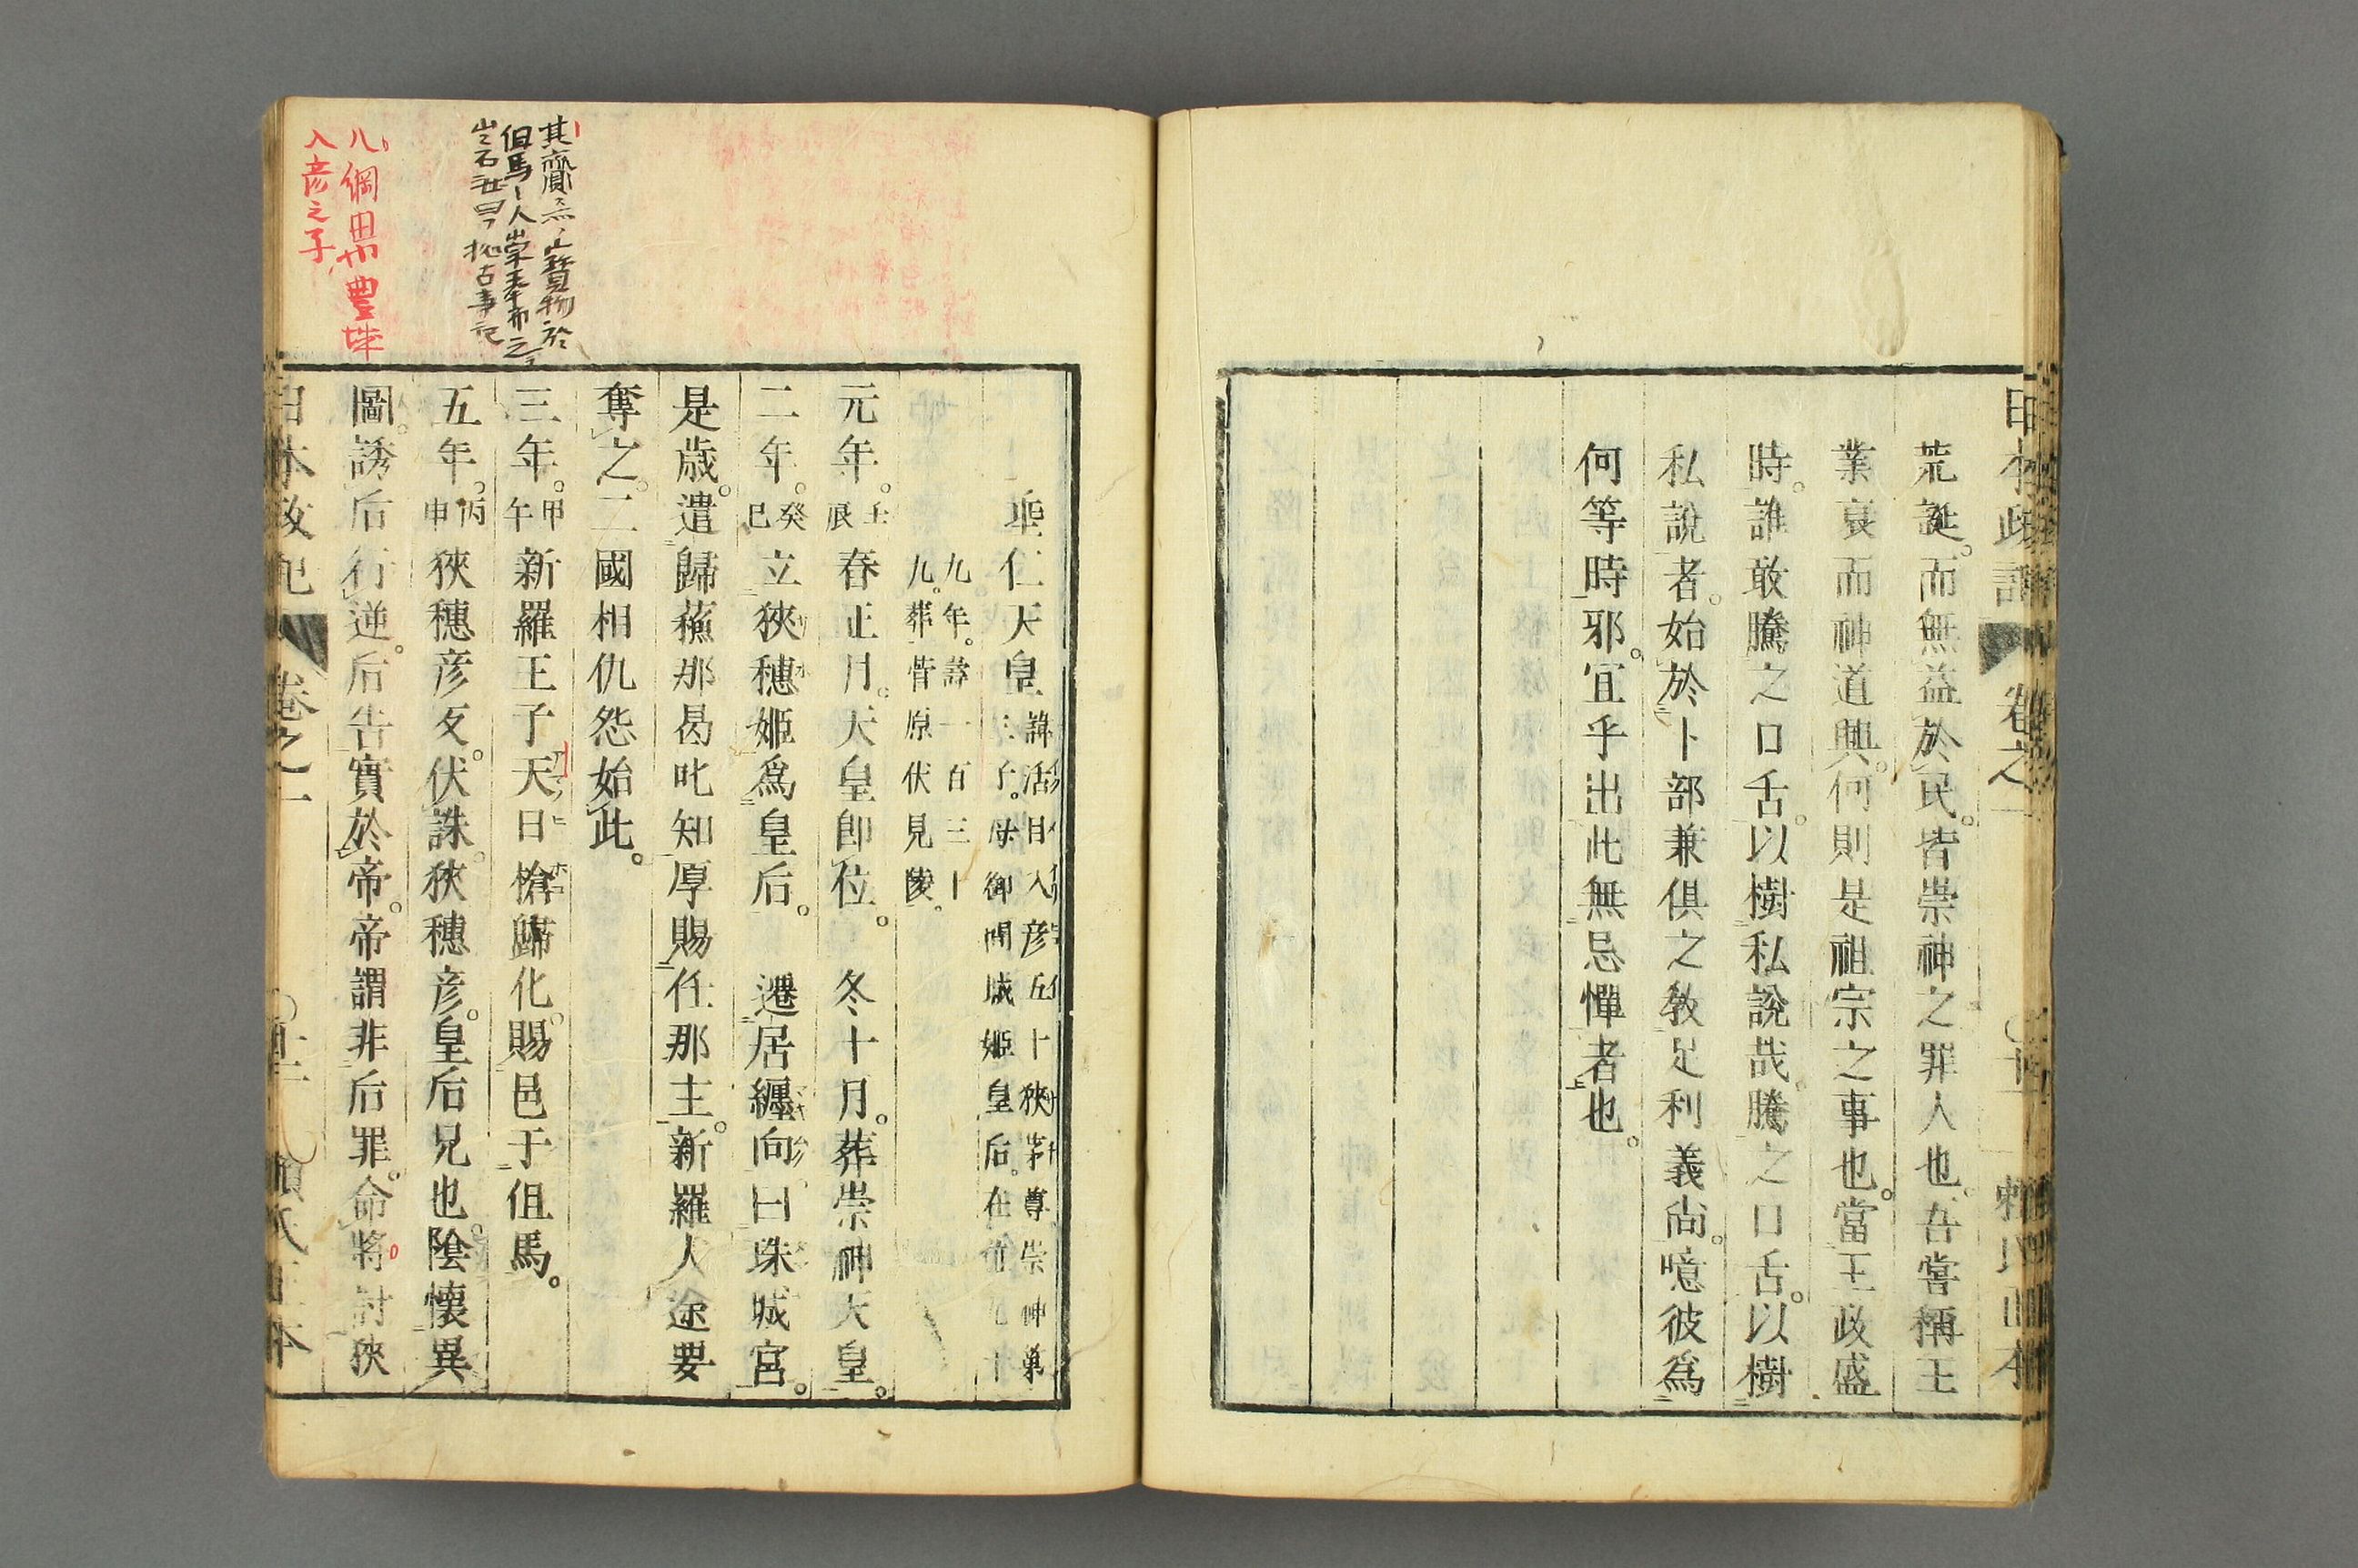 日本政記
卷之一
賴氏正本
荒誕。而無益於民。皆崇神之罪人也。吾嘗稱王
業衰而神道興。何則是祖宗之事也。當王政盛
時。誰敢騰之口舌。以樹私說哉。騰之口舌。以樹
私說者。始於卜部兼俱之敎足利義尙。噫彼爲
何等時邪。宜乎出此無忌憚者也。
垂仁天皇諱活目入彥五十狹茅尊崇神第
三子。母御間城姬皇后。在位九十
九年。壽一百三十
九。葬菅原伏見陵。
元年。壬辰春正月。天皇卽位。冬十月。葬崇神天皇。
二年。癸巳立狹穗姬爲皇后。遷居纏向曰珠城宮。
是歲。遣歸蘓那曷叱知厚賜任那主。新羅人途要
奪之。二國相仇怨始此。
三年。甲午新羅王子天日槍歸化。賜邑于伹馬。
五年。丙申狹穗彥反。伏誅。狹穗彥。皇后兄也。陰懷異
圖。誘后行逆。后告實於帝。帝謂非后罪。命將討狹
日本政記
卷之一
賴氏正本
其齎來之寶物於
但馬人崇奉而之
岩石注曰据古事記
八綱田豐城
入彥之子